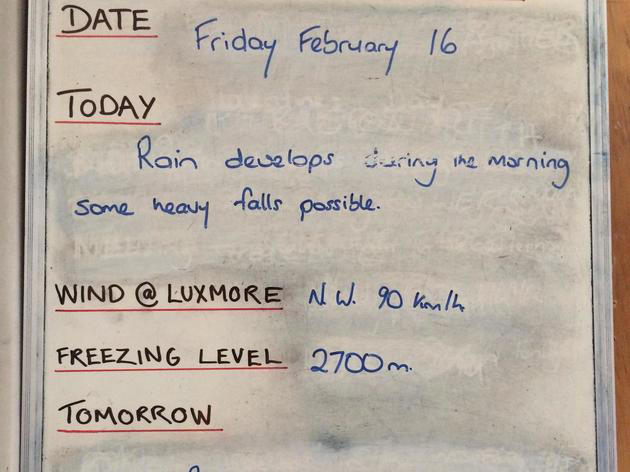 DATE Friday February 16
TODAY
Rain develops during the morning
some heavy falls possible.
WIND @ LUXMORE N.W. 90 Km/h
FREEZING LEVEL 2700m.
TOMORROW